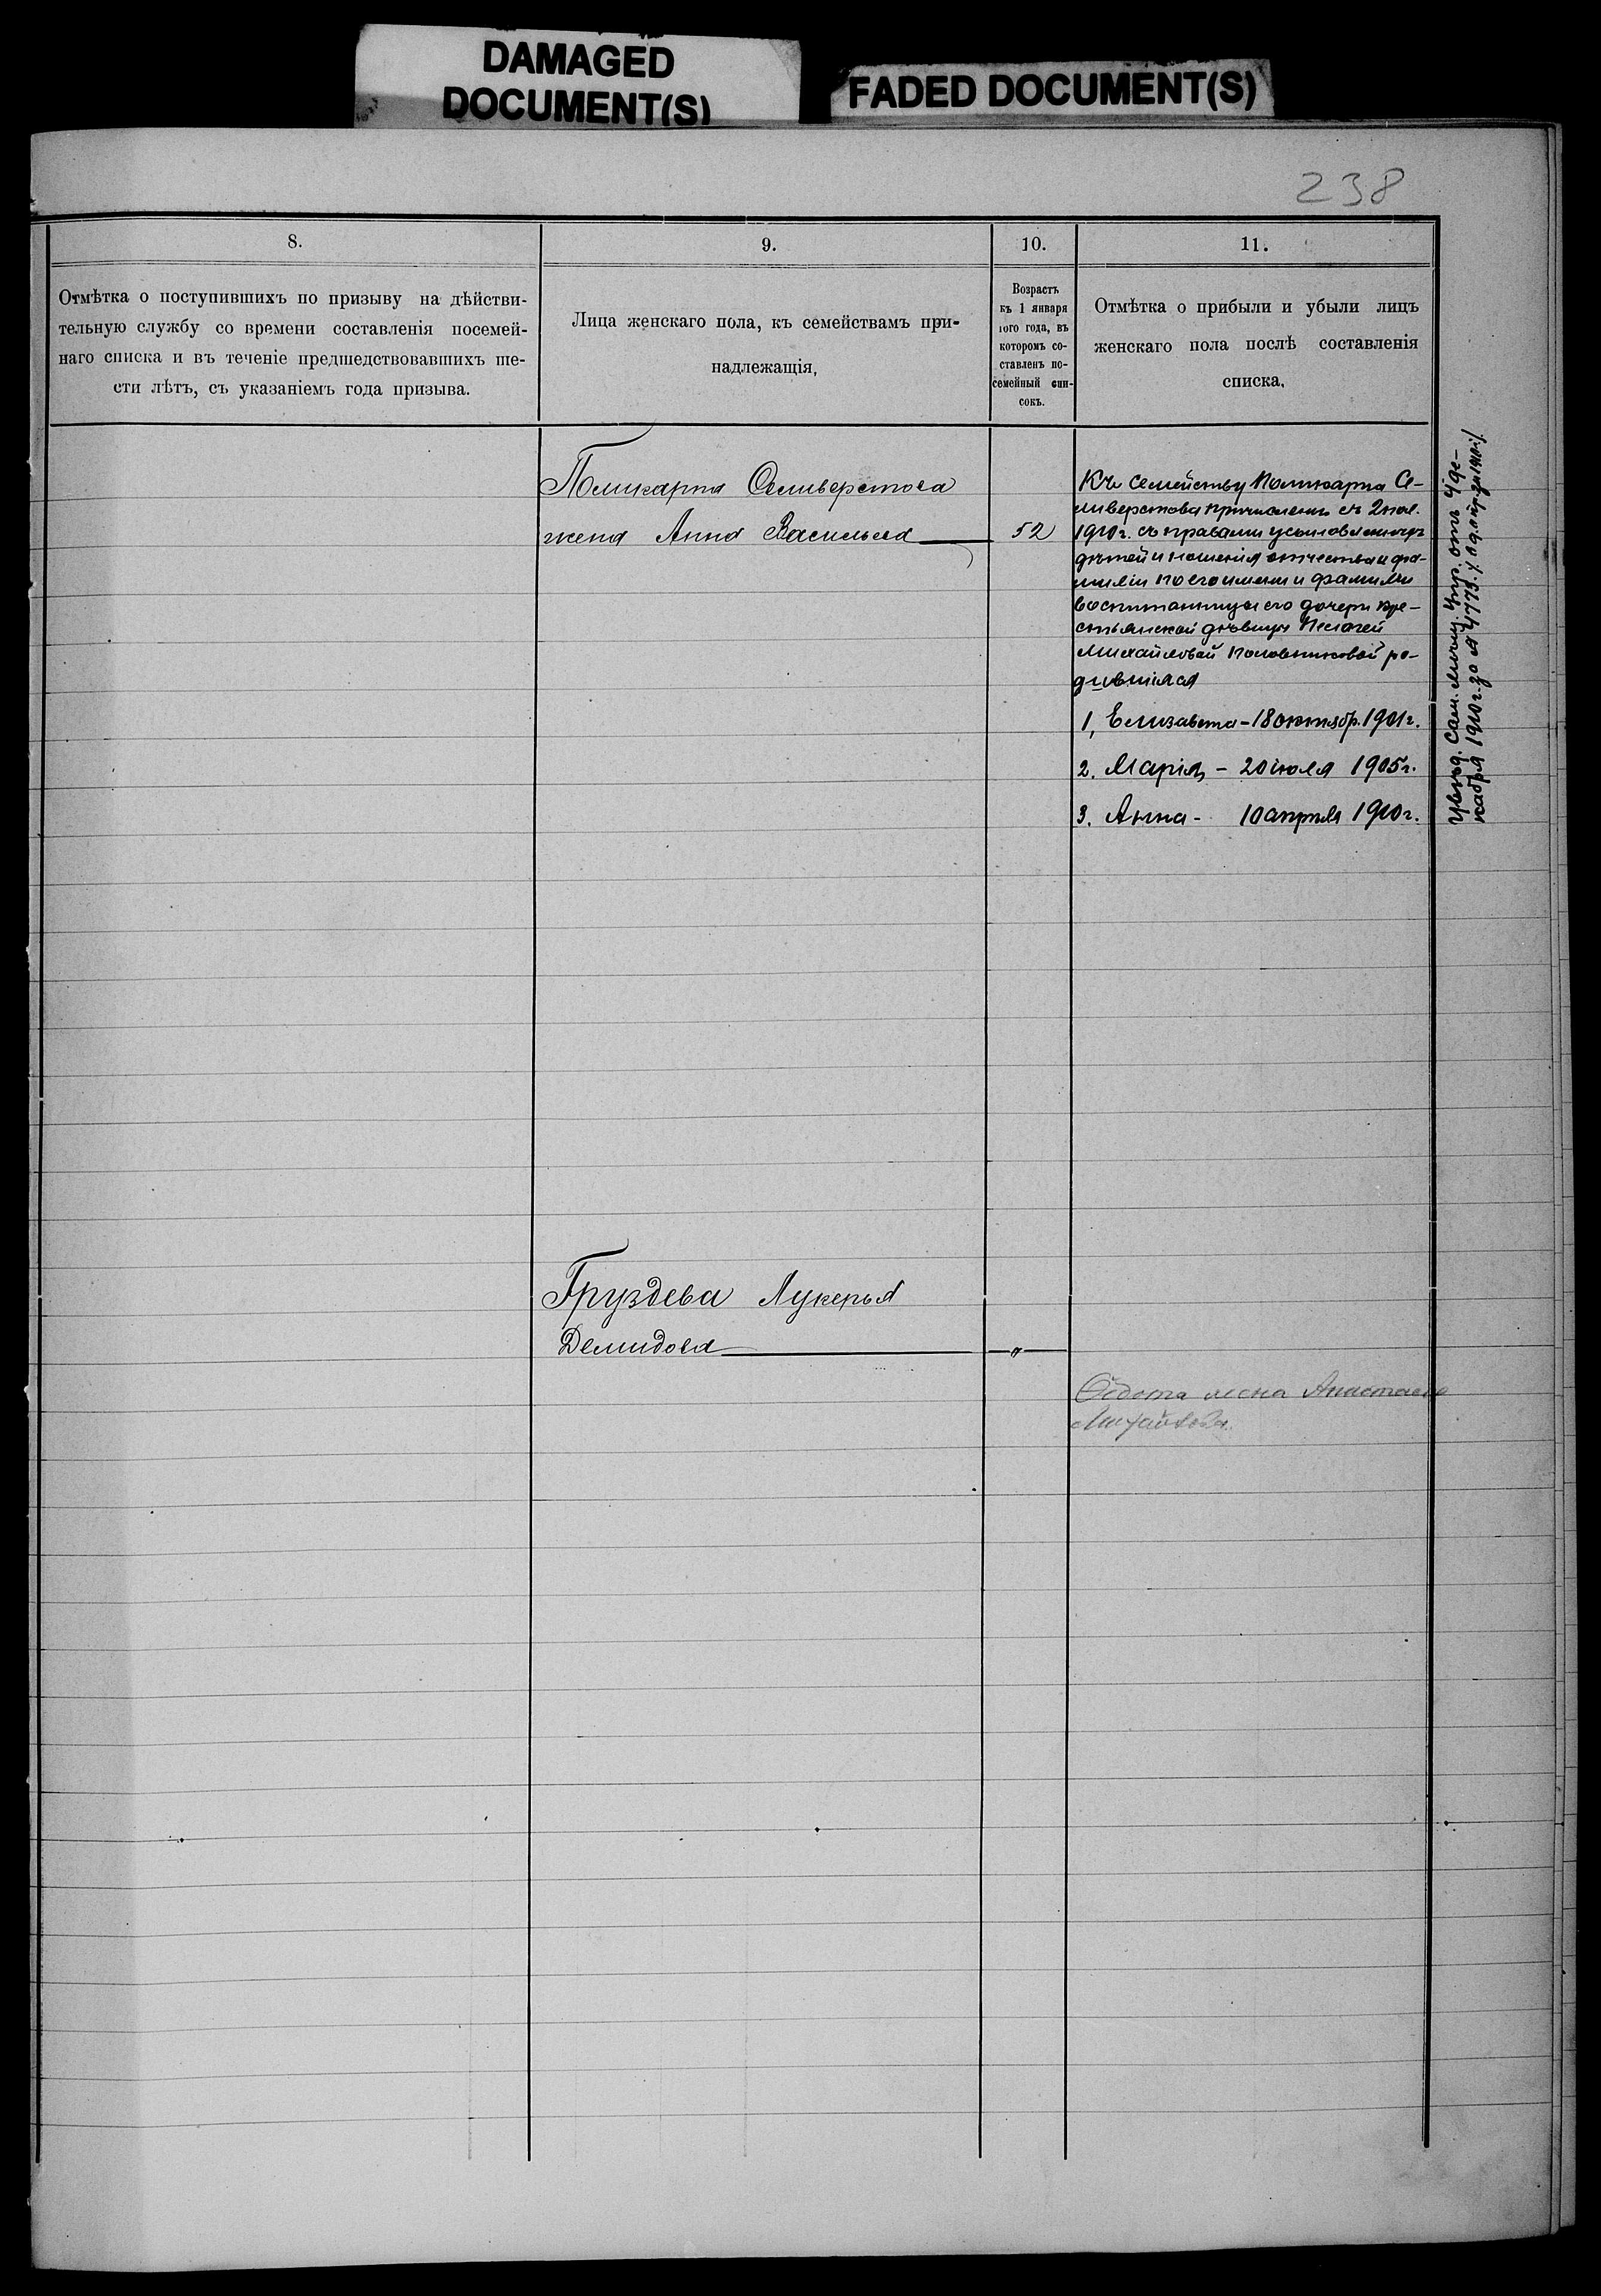 DAMAGED
DOCUMENT(S)
FADED DOCUMENT(S)
238
8.
Отмѣтка о поступившихъ по призыву на дѣйстви-
тельную службу со времени составленія посемей-
наго списка и въ теченіе предшедствовавшихъ ше-
сти лѣтъ, съ указаніемъ года призыва.
9.
Лица женскаго пола, къ семействамъ при-
надлежащія,
10.
Возрастъ
къ 1 января
того года, въ
которомъ со-
ставленъ по-
семейный спи-
сокъ.
11.
Отмѣтка о прибыли и убыли лицъ
женскаго пола послѣ составленія
списка,
Поликарпа Селиверстова
жена Анна Васильева
52
Къ семейству Поликарпа Се-
ливерстова причислены съ 2 пол.
1910 г. съ правами усыновленныхъ
дѣтей и ношенія отчества и фа-
миліи по его имени и фамиліи
воспитанницы его дочери кре-
стьянской дѣвицы Пелагеи
Михайловой Половниковой ро-
дившіяся
1, Елизавета - 18 октябр. 1901 г.
2. Марія - 20 іюля 1905 г.
3. Анна - 10 апрѣля 1910 г.
Увѣд. Сам. Мѣщ. Упр. отъ 4 де-
кабря 1910 г. за № 4773.
Груздева Лукерья
Демидова
"
Ѳедота жена Анастасія
Михайлова.